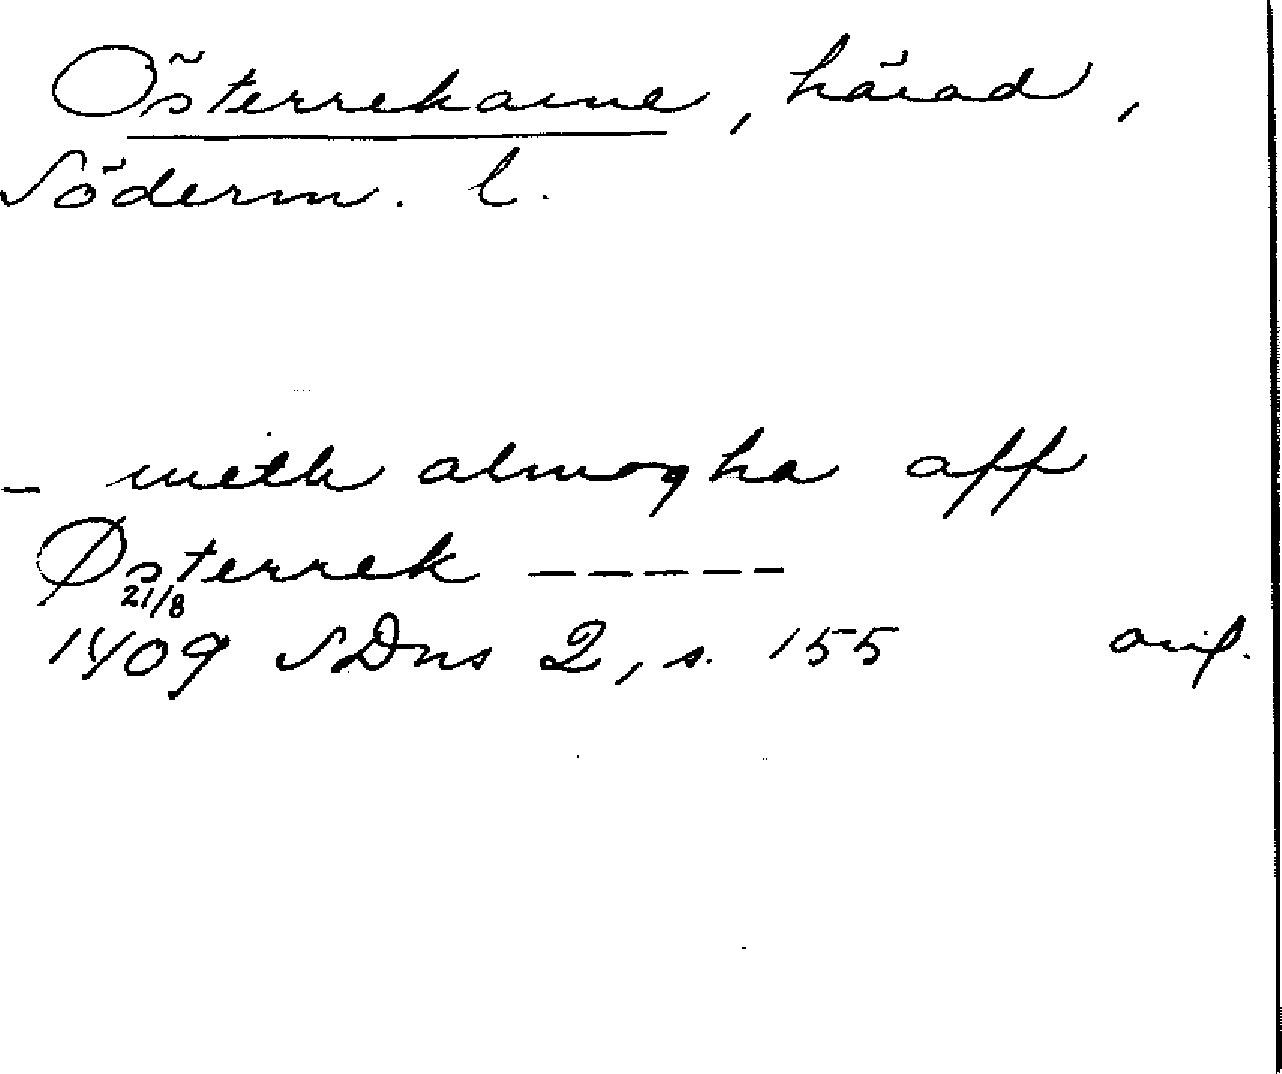 Österrekarne, härad,
Söderm. l.
- meth almogha aff
Østerrek -----
21/8
1409 SDns 2, s. 155 orig.